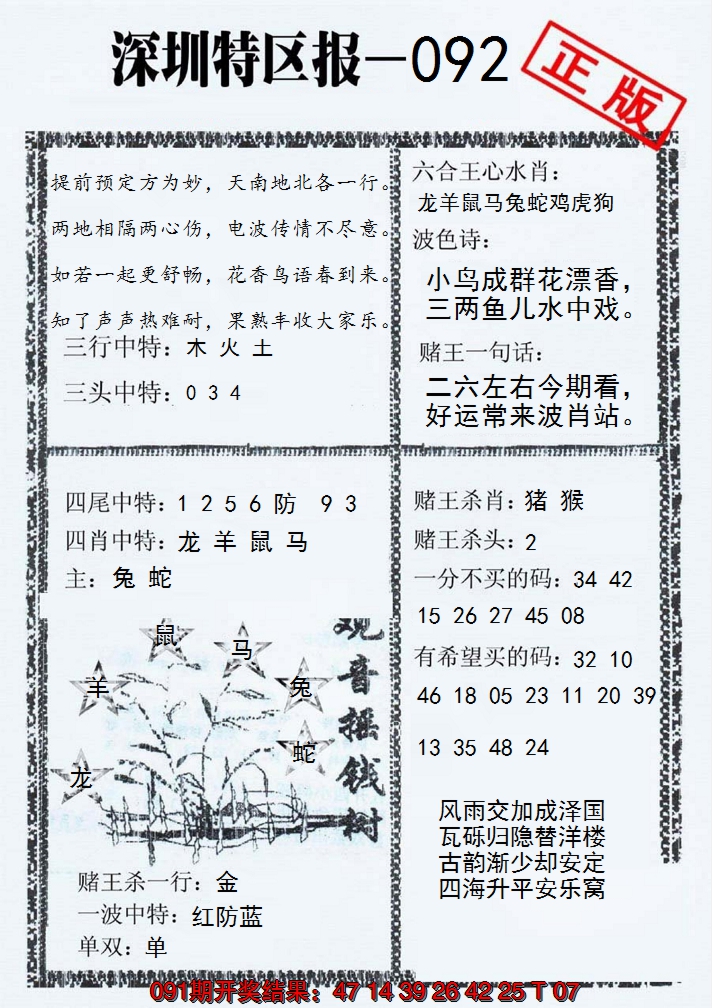 深圳特区报—092
正版
提前预定方为妙，天南地北各一行。
两地相隔两心伤，电波传情不尽意。
如若一起更舒畅，花香鸟语春到来。
知了声声热难耐，果熟丰收大家乐。
三行中特：木 火 土
三头中特：0 3 4
六合王心水肖：
龙羊鼠马兔蛇鸡虎狗
波色诗：
小鸟成群花漂香，
三两鱼儿水中戏。
赌王一句话：
二六左右今期看，
好运常来波肖站。
四尾中特：1 2 5 6 防 9 3
四肖中特：龙 羊 鼠 马
主：兔 蛇
鼠
马
羊
兔
蛇
龙
观音摇钱树
赌王杀一行：金
一波中特：红防蓝
单双：单
赌王杀肖：猪 猴
赌王杀头：2
一分不买的码：34 42
15 26 27 45 08
有希望买的码：32 10
46 18 05 23 11 20 39
13 35 48 24
风雨交加成泽国
瓦砾归隐替洋楼
古韵渐少却安定
四海升平安乐窝
091期开奖结果：47 14 39 26 42 25 T 07